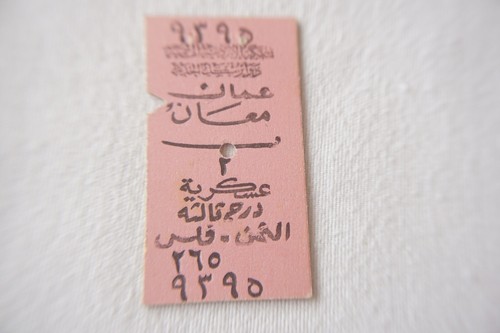 ٩٣٩٥
عمان
معان
٢
عسكرية
درجة ثالثة
الثمن - فلس
٢٦٥
٩٣٩٥